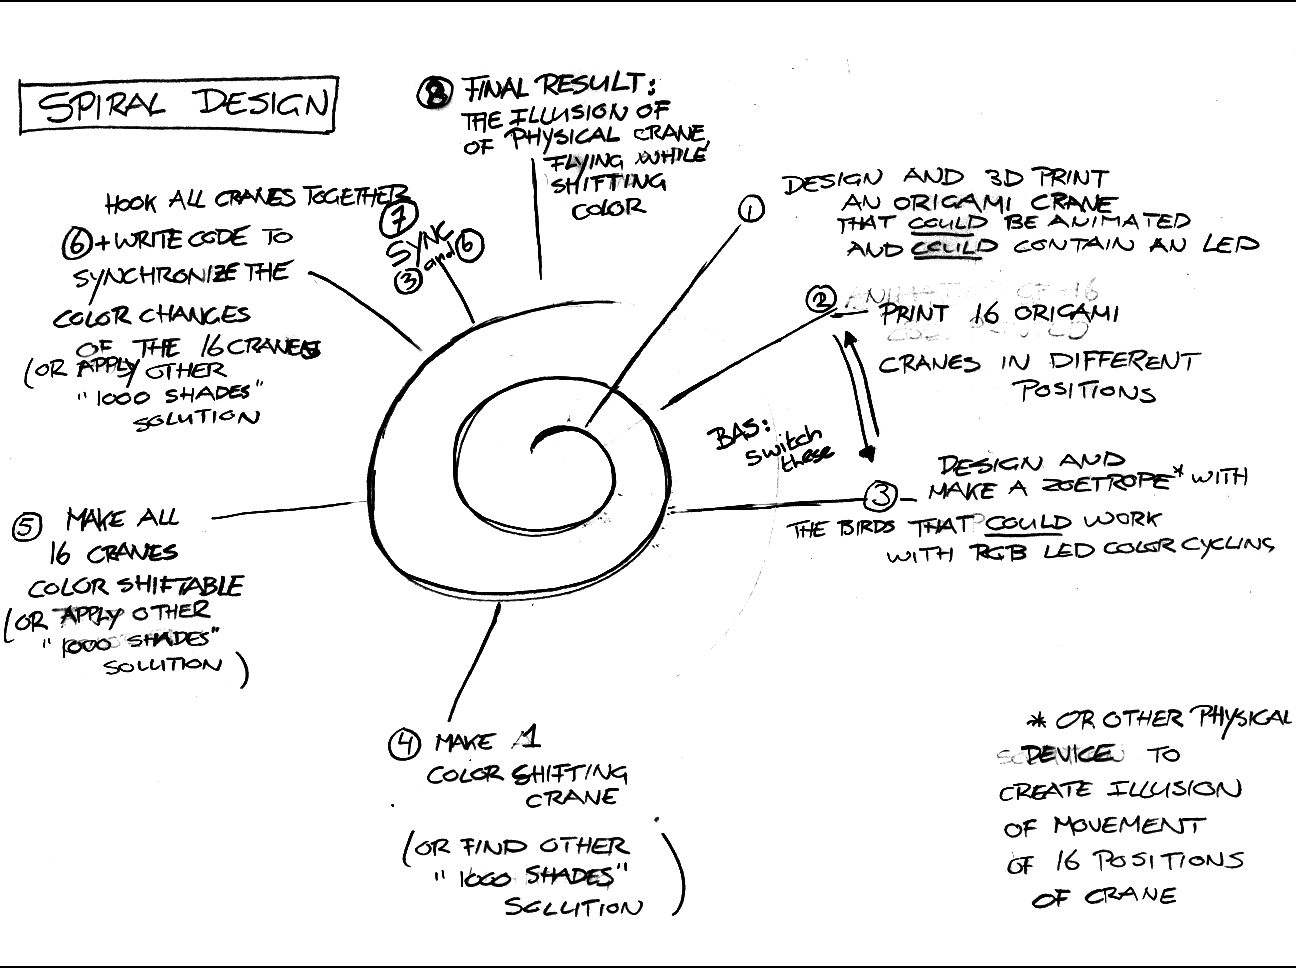 SPIRAL DESIGN
8 FINAL RESULT:
THE ILLUSION OF
OF PHYSICAL CRANE
FLYING WHILE
SHIFTING
COLOR
1 DESIGN AND 3D PRINT
AN ORIGAMI CRANE
THAT COULD BE ANIMATED
AND COULD CONTAIN AN LED
2 PRINT 16 ORIGAMI
CRANES IN DIFFERENT
POSITIONS
BAS:
Switch
these
3 DESIGN AND
MAKE A ZOETROPE* WITH
THE BIRDS THAT COULD WORK
WITH RGB LED COLOR CYCLING
4 MAKE 1
COLOR SHIFTING
CRANE
(OR FIND OTHER
"1000 SHADES"
SOLUTION)
5 MAKE ALL
16 CRANES
COLOR SHIFTABLE
(OR APPLY OTHER
"1000 SHADES"
SOLUTION)
HOOK ALL CRANES TOGETHER
6 + WRITE CODE TO
SYNCHRONIZE THE
COLOR CHANGES
OF THE 16 CRANES
(OR APPLY OTHER
"1000 SHADES"
SOLUTION
7
SYNC
3 and 6
* OR OTHER PHYSICAL
DEVICE TO
CREATE ILLUSION
OF MOVEMENT
OF 16 POSITIONS
OF CRANE